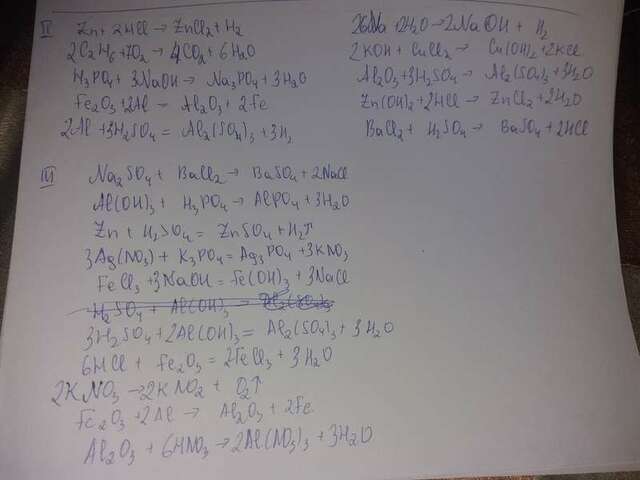 II Zn + 2HCl → ZnCl2 + H2
2C2H6 + 7O2 → 4CO2 + 6H2O
H3PO4 + 3NaOH → Na3PO4 + 3H2O
Fe2O3 + 2Al → Al2O3 + 2Fe
2Al + 3H2SO4 = Al2(SO4)3 + 3H2
2Na + 2H2O → 2NaOH + H2
2KOH + CuCl2 → Cu(OH)2 + 2KCl
Al2O3 + 3H2SO4 → Al2(SO4)3 + 3H2O
Zn(OH)2 + 2HCl → ZnCl2 + 2H2O
BaCl2 + H2SO4 → BaSO4 + 2HCl
Na2SO4 + BaCl2 → BaSO4 + 2NaCl
Al(OH)3 + H3PO4 → AlPO4 + 3H2O
Zn + H2SO4 = ZnSO4 + H2↑
3Ag(NO3) + K3PO4 = Ag3PO4 + 3KNO3
FeCl3 + 3NaOH = Fe(OH)3 + 3NaCl
H2SO4 + Al(OH)3 → Al2(SO4)3
3H2SO4 + 2Al(OH)3 = Al2(SO4)3 + 3H2O
6HCl + Fe2O3 = 2FeCl3 + 3H2O
2KNO3 → 2KNO2 + O2↑
Fe2O3 + 2Al → Al2O3 + 2Fe
Al2O3 + 6HNO3 → 2Al(NO3)3 + 3H2O